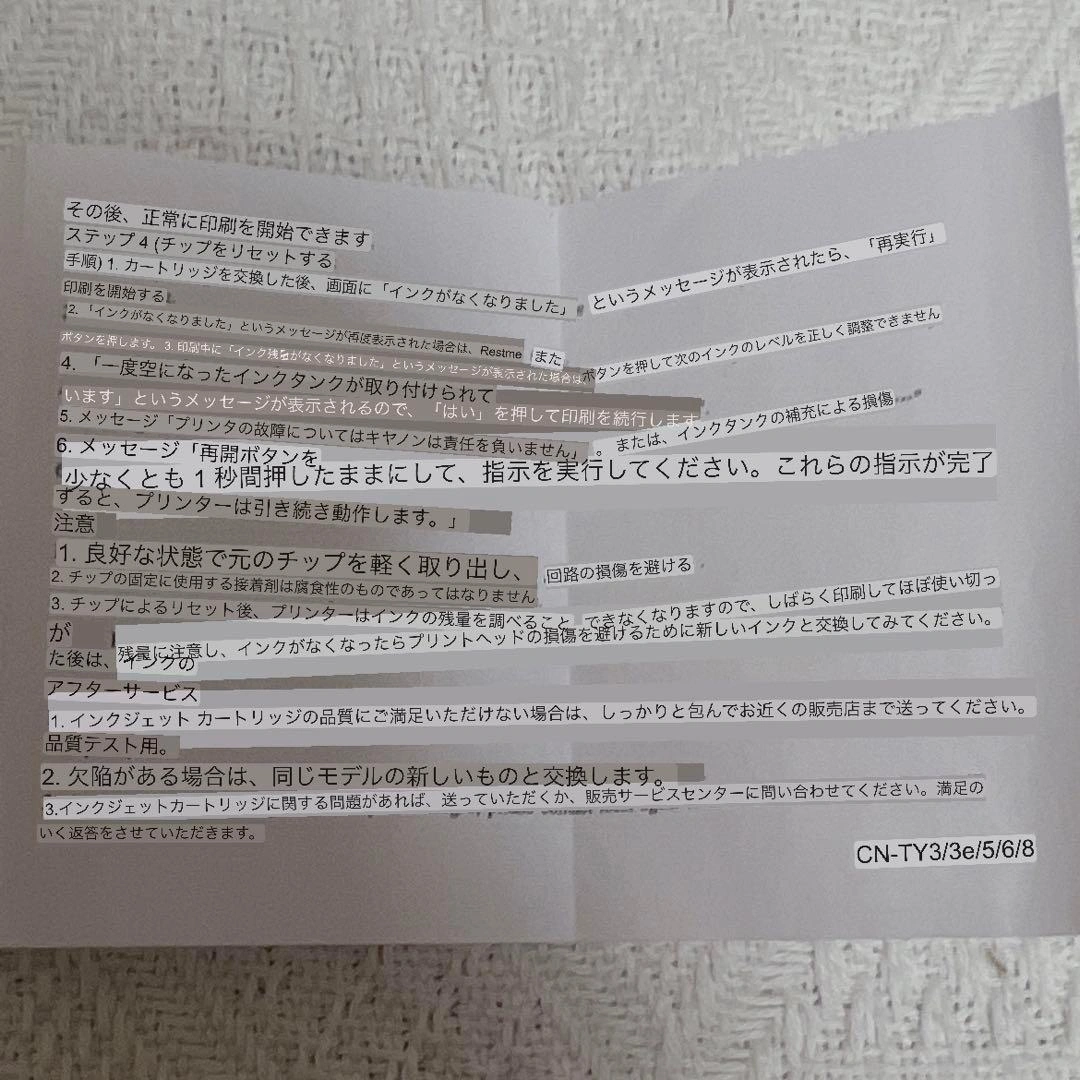 その後、正常に印刷を開始できます
ステップ 4 (チップをリセットする
手順) 1. カートリッジを交換した後、画面に「インクがなくなりました」 というメッセージが表示されたら、「再実行」
印刷を開始する
2. 「インクがなくなりました」というメッセージが再度表示された場合は、Restme また ボタンを押して次のインクのレベルを正しく調整できません
ボタンを押します。3. 印刷中に「インク残量がなくなりました」というメッセージが表示された場合は
4. 「一度空になったインクタンクが取り付けられて
います」というメッセージが表示されるので、「はい」を押して印刷を続行します
5. メッセージ「プリンタの故障についてはキヤノンは責任を負いません」 。または、インクタンクの補充による損傷
6. メッセージ「再開ボタンを
少なくとも 1 秒間押したままにして、指示を実行してください。これらの指示が完了
すると、プリンターは引き続き動作します。」
注意
1. 良好な状態で元のチップを軽く取り出し、 回路の損傷を避ける
2. チップの固定に使用する接着剤は腐食性のものであってはなりません
3. チップによるリセット後、プリンターはインクの残量を調べること できなくなりますので、しばらく印刷してほぼ使い切っ
が 残量に注意し、インクがなくなったらプリントヘッドの損傷を避けるために新しいインクと交換してみてください。
た後は、インクの
アフターサービス
1. インクジェット カートリッジの品質にご満足いただけない場合は、しっかりと包んでお近くの販売店まで送ってください。
品質テスト用。
2. 欠陥がある場合は、同じモデルの新しいものと交換します。
3.インクジェットカートリッジに関する問題があれば、送っていただくか、販売サービスセンターに問い合わせてください。満足の
いく返答をさせていただきます。
CN-TY3/3e/5/6/8